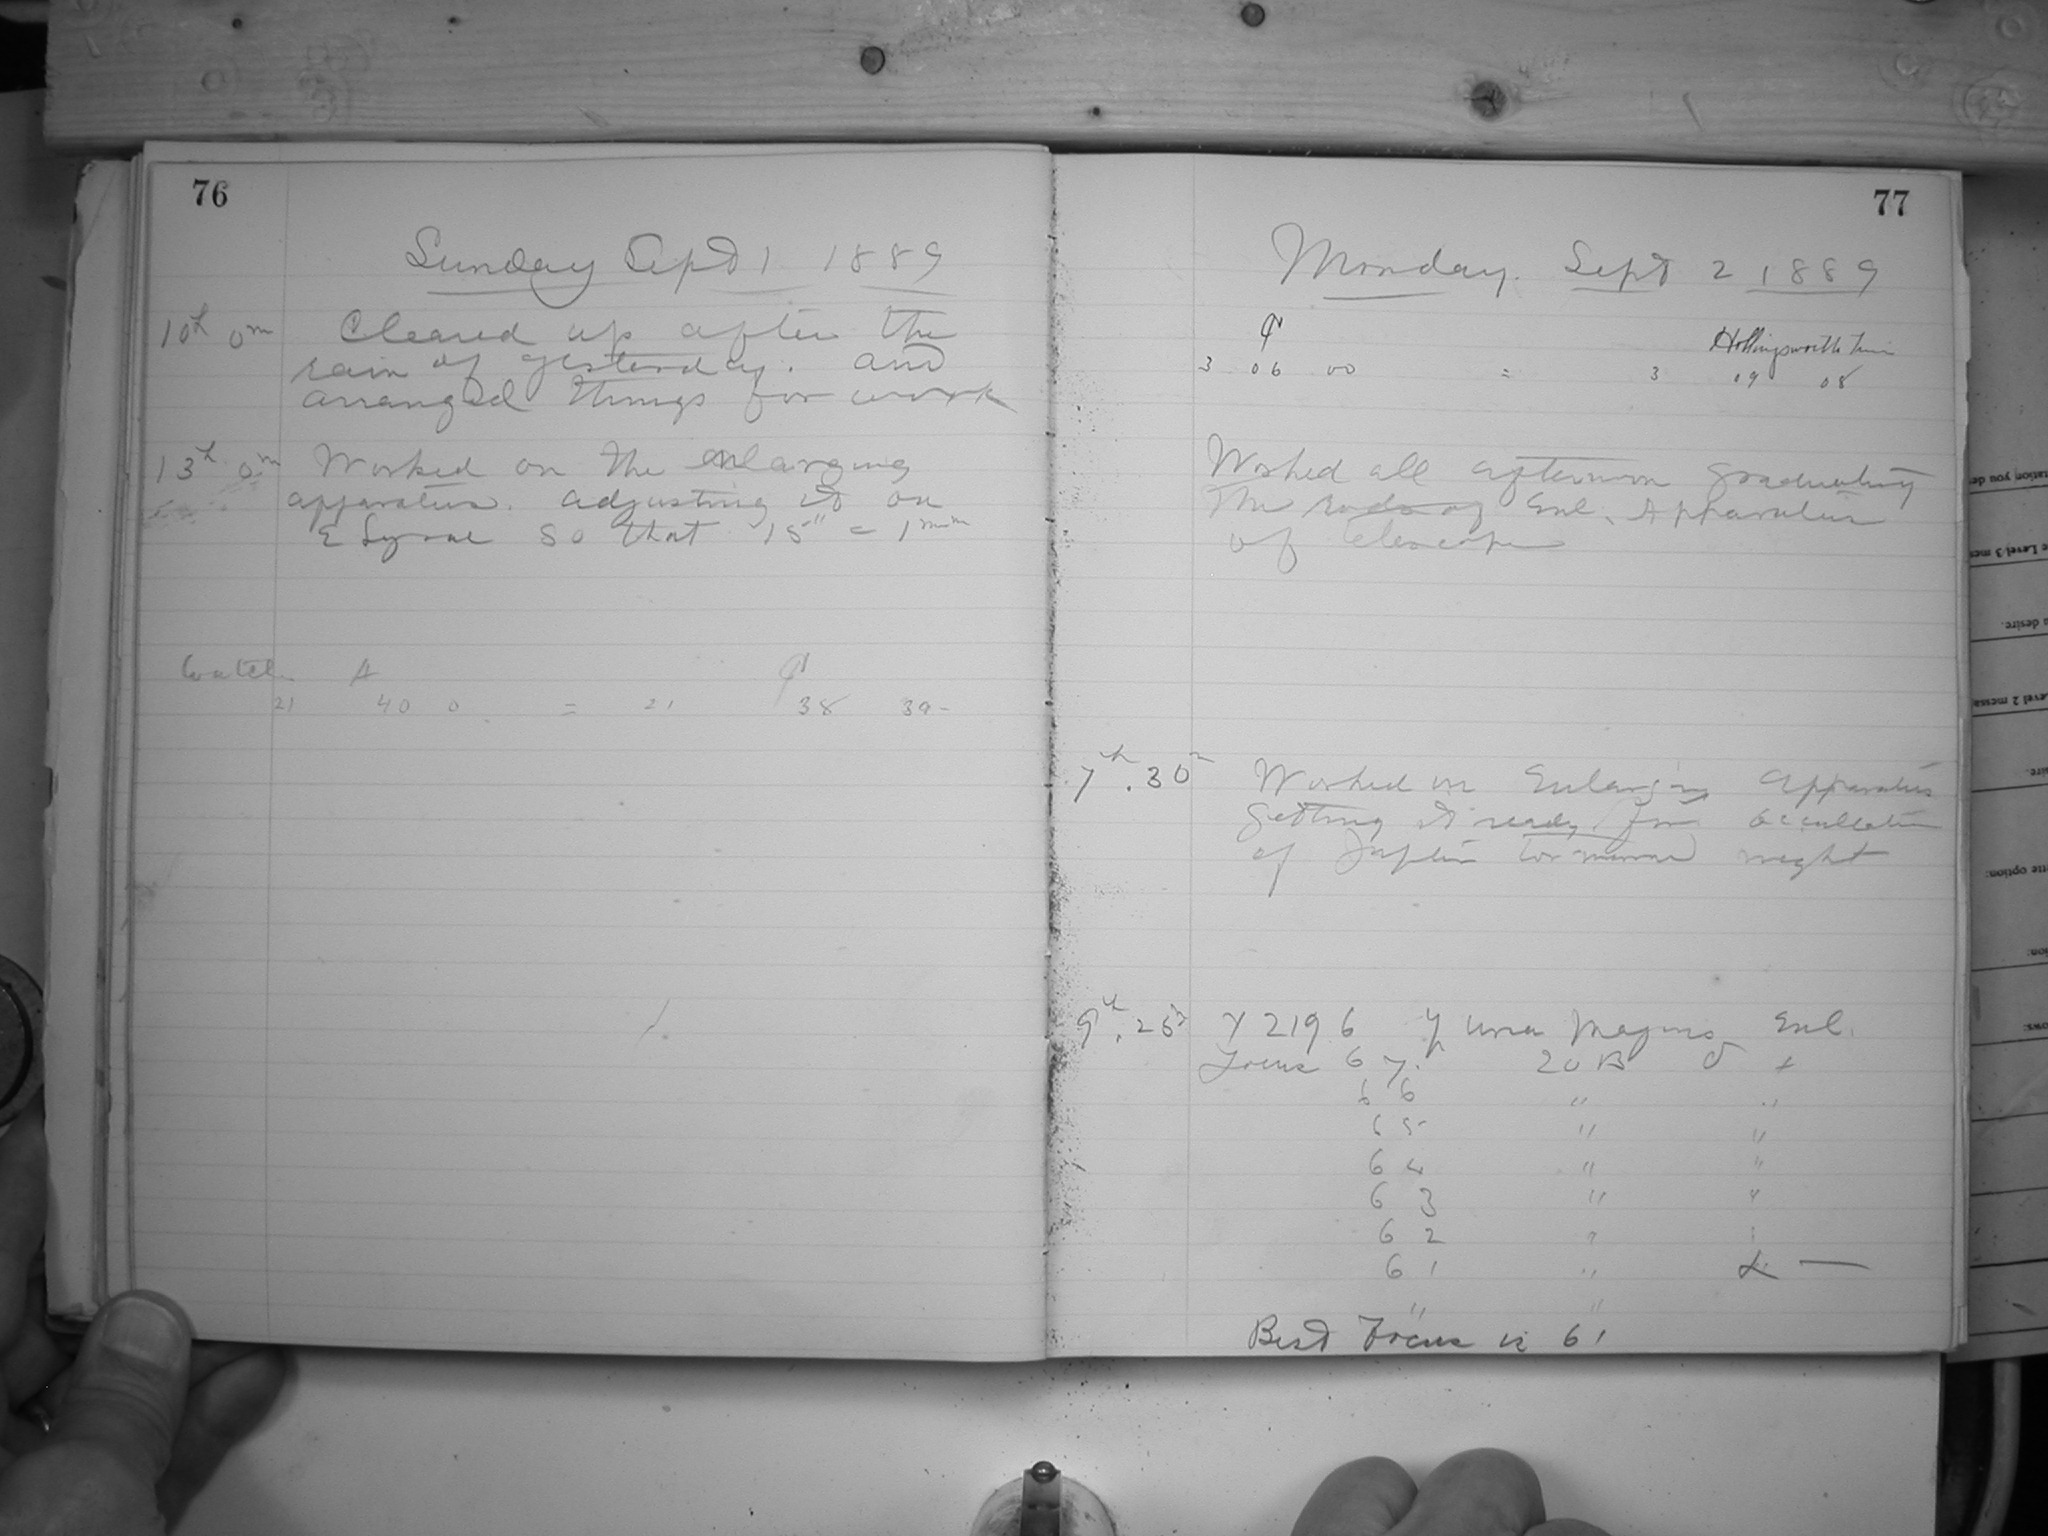 76
Sunday Sept 1 1889
10h 0m Cleared up after the
rain of yesterday. and
arranged things for work
13h 0m Worked on the enlarging
apparatus. adjusting it on
ε Lyrae so that 15" = 1mm
Watch A
21 40 0 = 21 38 39-
77
Monday. Sept 2 1889
Hollingsworth Time
3 06 00 = 3 09 08
Worked all afternoon graduating
the rods of Enl. Apparatus
of telescope
7h.30m Worked on Enlarging Apparatus
getting it ready for Occultation
of Jupiter tomorrow night
9h.25m Y 2196 Ursa Majoris Enl.
Focus 67. 20 B
66 " "
65 " "
64 " "
63 " "
62 " "
61 "
" "
Best Focus is 61